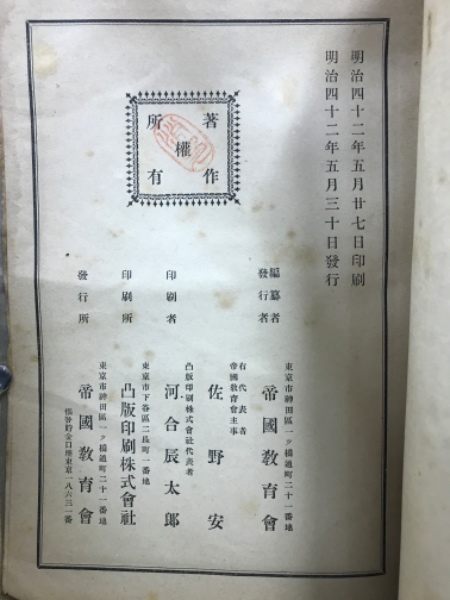 明治四十二年五月廿七日印刷
明治四十二年五月三十日發行
著作權所有
編纂者
發行者
東京市神田區一ツ橋通町二十一番地
帝國教育會
右代表者
帝國教育會主事
佐野安
印刷者
凸版印刷株式會社代表者
河合辰太郎
印刷所
東京市下谷區二長町一番地
凸版印刷株式會社
發行所
東京市神田區一ツ橋通町二十一番地
帝國教育會
振替貯金口座東京一八六三一番